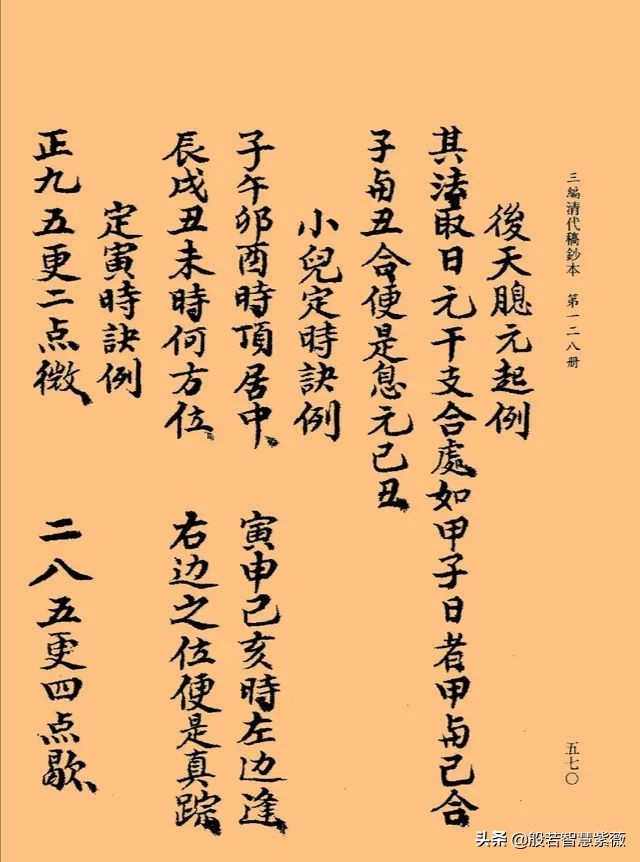 三編清代稿鈔本　第一二八册
後天胎元起例
其法取日元干支合處如甲子日者甲与己合
子与丑合便是息元己丑
小兒定時訣例
子午卯酉時頂居中　寅申巳亥時左边逢
辰戌丑未時何方位　右边之位便是真踪
定寅時訣例
正九五更二点徹　二八五更四点歇
五七〇
头条 @般若智慧紫薇